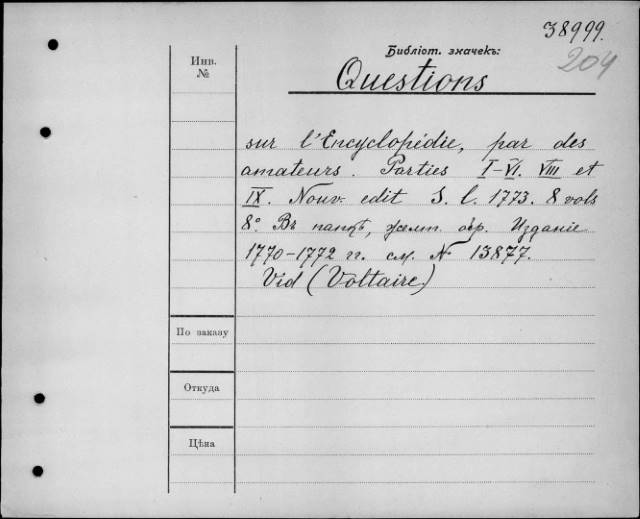 38999.
204
Библіот. значекъ:
Инв.
№
Questions
sur l'Encyclopédie, par des
amateurs. Parties I-VI. VIII et
IX. Nouv. edit S. l. 1773. 8 vols
8º. Въ папкѣ, желт. обр. Изданіе
1770-1772 гг. см. № 13877.
Vid (Voltaire)
По заказу
Откуда
Цѣна